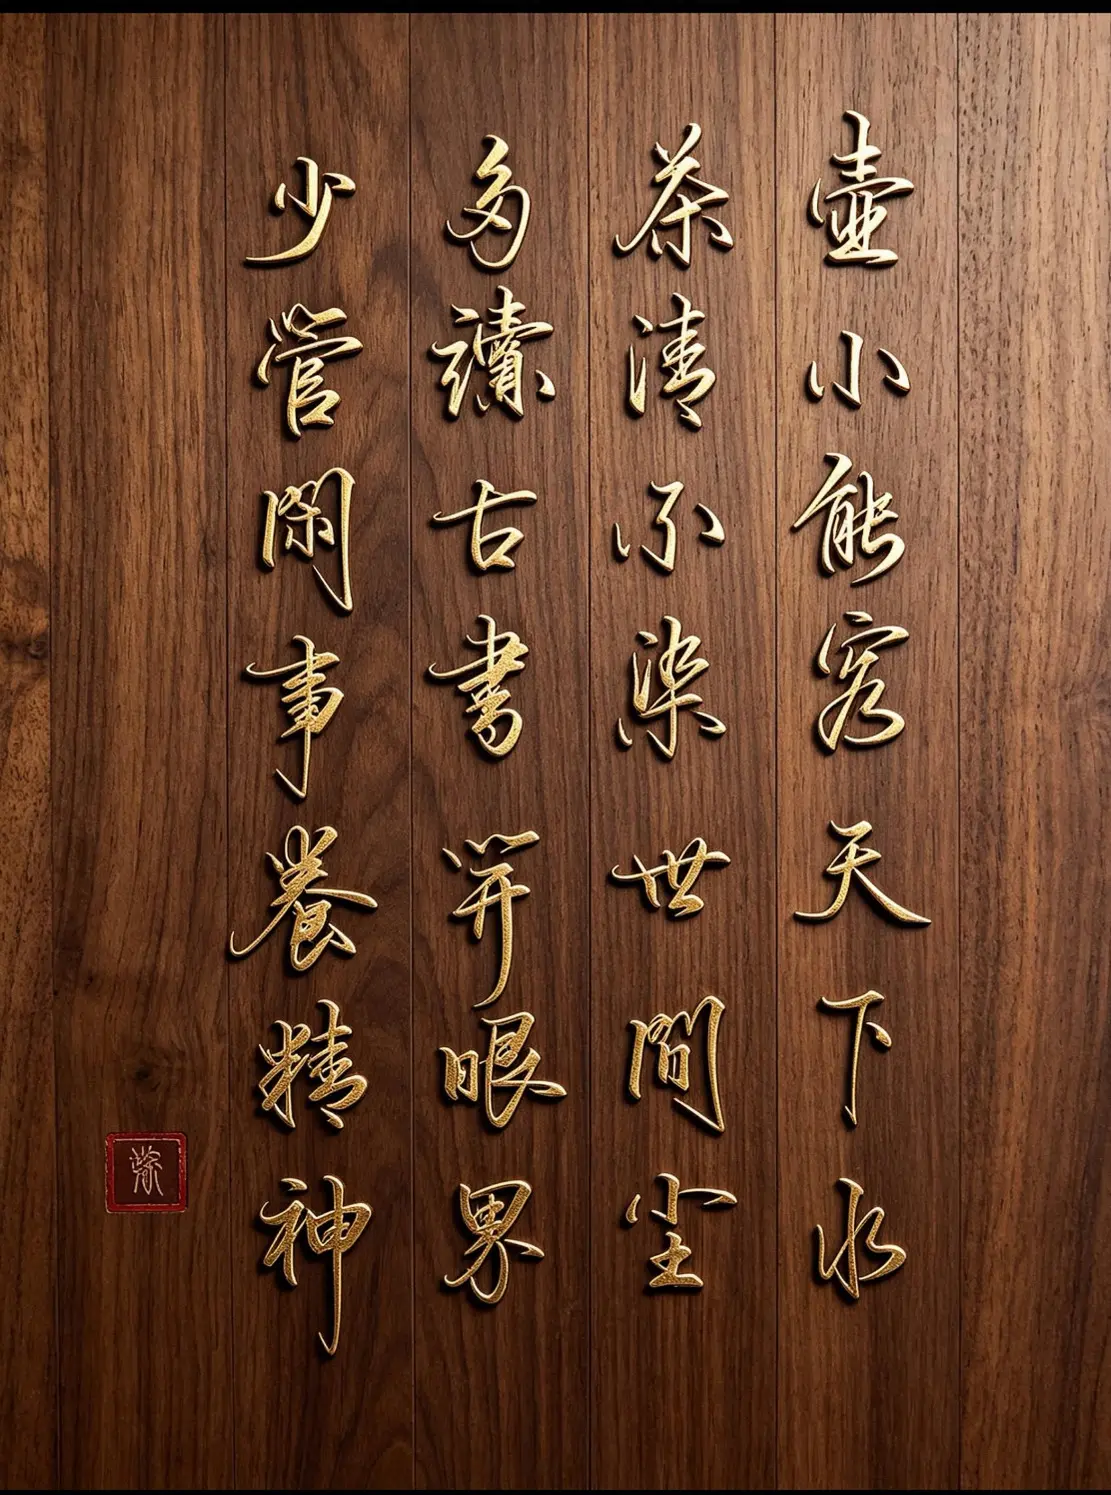 壺小能容天下水
茶清不染世間尘
多讀古書開眼界
少管閑事養精神